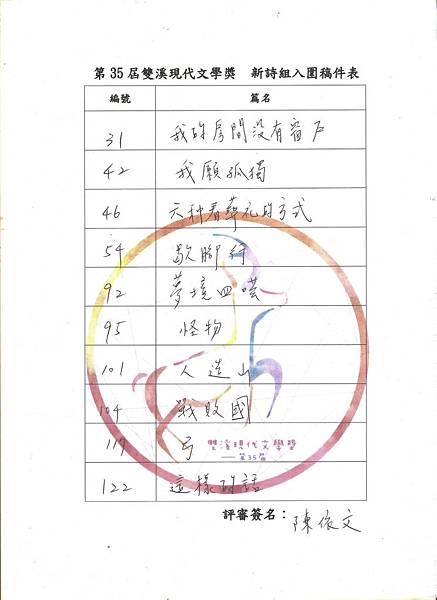 第35屆雙溪現代文學獎　新詩組入圍稿件表
編號 篇名
31 我的房間沒有窗戶
42 我願孤獨
46 六种看葬礼的方式
54 歇腳行
92 夢境四嘆
95 怪物
101 人造山
104 戰敗國
119 弓
雙溪現代文學獎
——第35屆
122 這樣的話
評審簽名：陳依文